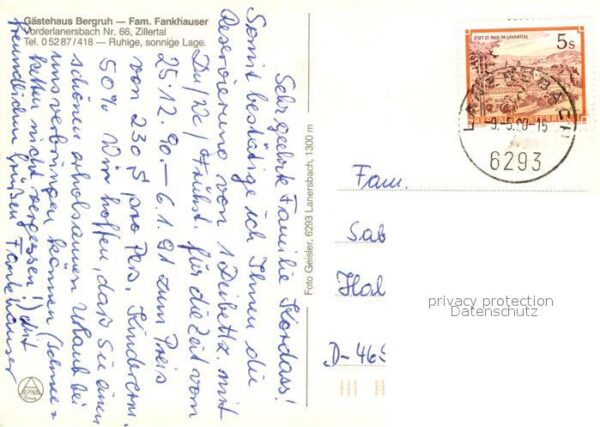 Gästehaus Bergruh — Fam. Fankhauser
Vorderlanersbach Nr. 66, Zillertal
Tel. 0 52 87 / 418 — Ruhige, sonnige Lage.
Sehr geehrte Familie Kordass!
Somit bestätige ich Ihnen die
Reservierung von 1 Dreibettz. mit
Du/Wc/Frühst. für die Zeit vom
25.12.90.–6.1.91 zum Preis
von 230 S pro Pers. Kindererm.
50% Wir hoffen, daß Sie einen
schönen erholsamen Urlaub bei
uns verbringen können (Schnee-
ketten nicht vergessen!) Mit
freundlichen Grüßen Fankhauser
Foto Geisler, 6293 Lanersbach, 1300 m
STIFT ST. PAUL IM LAVANTTAL
5 S
LANERSBACH
-9.-5.90-15
6293
Fam.
Sab
Hal
D-465
privacy protection
Datenschutz
ALPINA